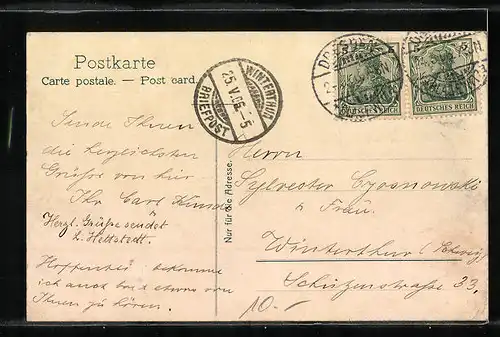 Postkarte
Carte postale. — Post card.
WINTERTHUR
25.V.06.-5
BRIEFPOST
DRESDEN
DEUTSCHES REICH
DEUTSCHES REICH
Sende Ihnen
die herzlichsten
Grüße von hier
Ihr Carl
Herzl. Grüße sendet
L. Hettstedt.
Hoffentlich bekomme
ich auch bald etwas von
Ihnen zu hören.
Nur für die Adresse.
Herrn
Sylvester Czosnowski
u Frau.
Winterthur (Schweiz)
Schützenstrasse 33,
10.-